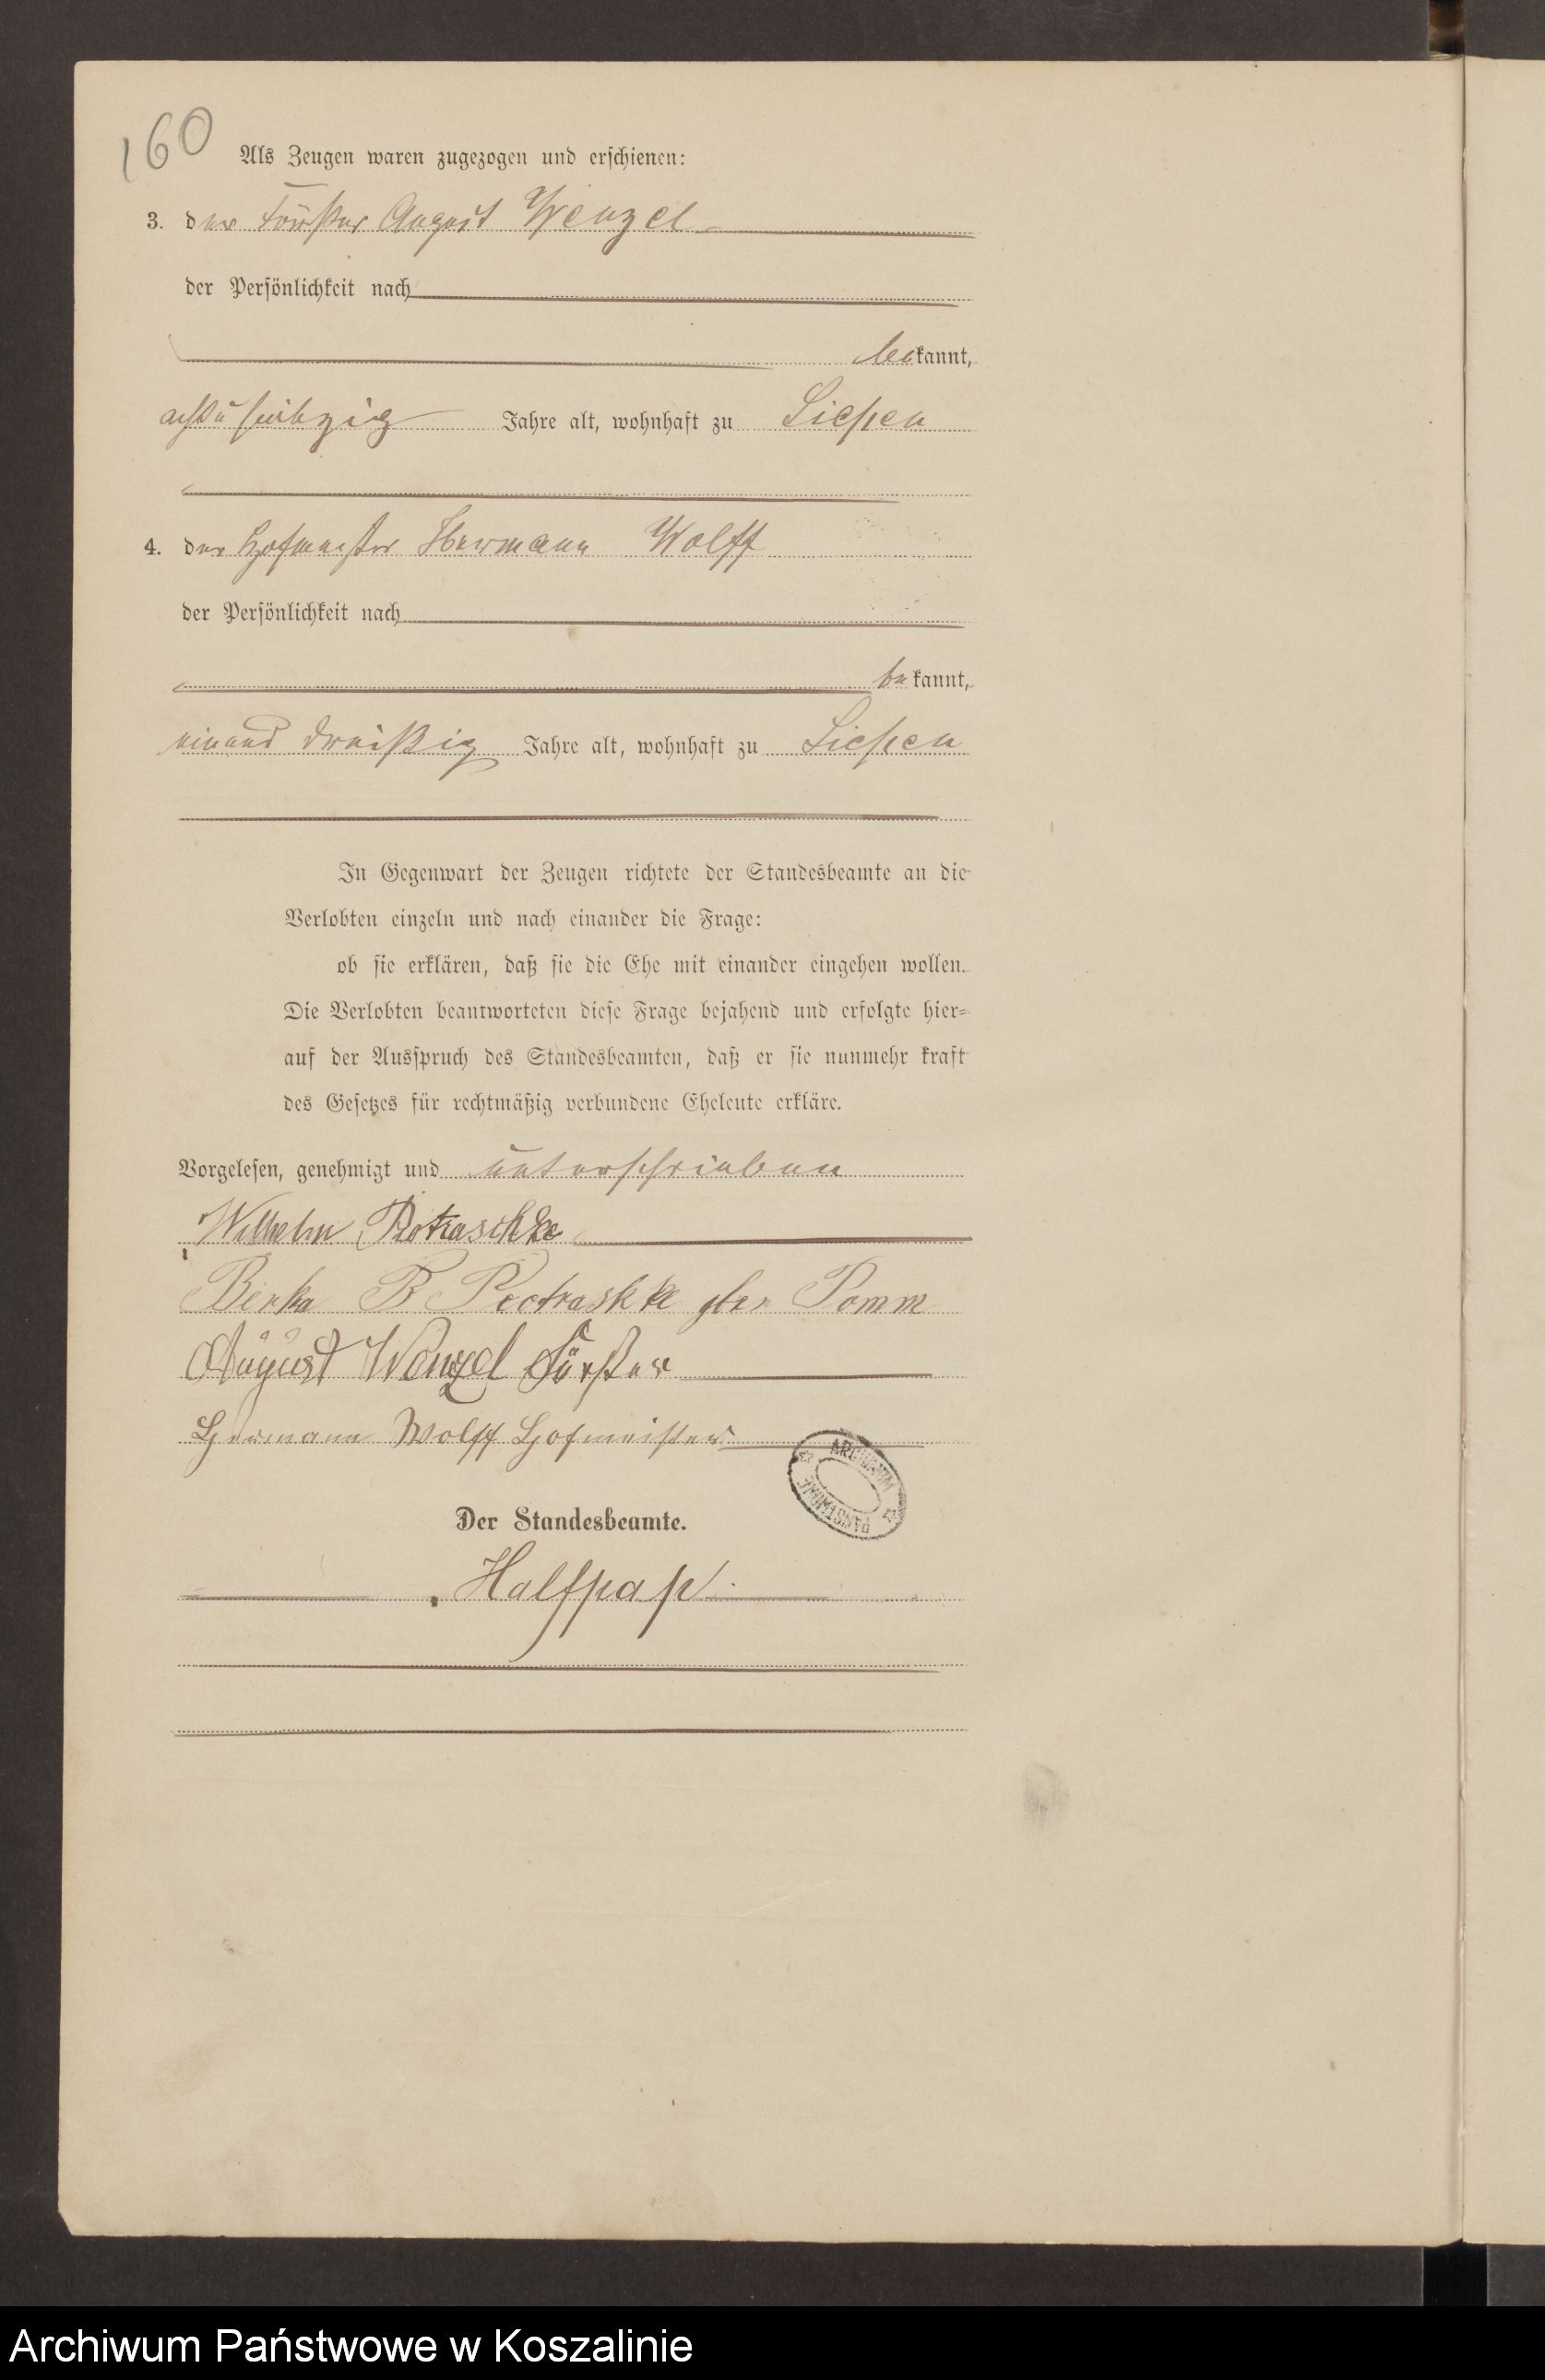 160
Als Zeugen waren zugezogen und erschienen:
3. der Förster August Wenzel
der Persönlichkeit nach
bekannt,
acht u siebzig Jahre alt, wohnhaft zu Liepen
4. der Hofmeister Hermann Wolff
der Persönlichkeit nach
bekannt,
einund dreißig Jahre alt, wohnhaft zu Liepen
In Gegenwart der Zeugen richtete der Standesbeamte an die
Verlobten einzeln und nach einander die Frage:
ob sie erklären, daß sie die Ehe mit einander eingehen wollen.
Die Verlobten beantworteten diese Frage bejahend und erfolgte hier=
auf der Ausspruch des Standesbeamten, daß er sie nunmehr kraft
des Gesetzes für rechtmäßig verbundene Eheleute erkläre.
Vorgelesen, genehmigt und unterschrieben
Wilhelm Piotraschke
B Piotraskke gber Pomm
August Wenzel Förster
Hermann Wolff Hofmeister
ARCHIWUM PAŃSTWOWE
Der Standesbeamte.
Halfpap.
Archiwum Państwowe w Koszalinie